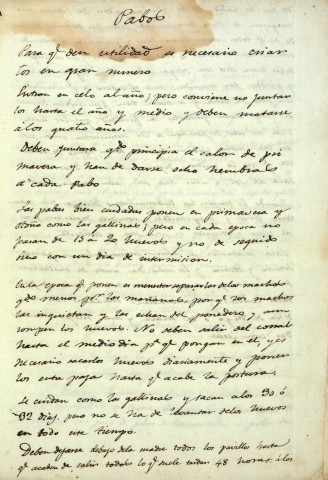 Pabos
Para qe den utilidad es necesario criar
los en gran numero
Entran en celo al año; pero conviene no juntar
los hasta el año y medio, y deben matarse
a los quatro años.
Deben juntarse qdo principia el calor de pri
mavera y han de darse ocho hembras
a cada pabo
Las pabas bien cuidadas ponen en primavera y
otoño como las gallinas; pero en cada epoca no
pasan de 15 à 20 huevos y no de seguido
sino con un dia de intermision.
En la epoca qe ponen es menester separarlas de los machos
qdo menos pr las mañanas, porqe los machos
las inquietan y las echan del ponedero y
rompen los huevos. No deben salir del corral
hasta el medio dia pa qe pongan en el, y es
necesario sacarlos huevos diariamente y ponen
los entre paja hasta qe acabe la postura.
Se cuidan como las gallinas y sacan a los 30 ó
32 dias, pero no se ha de levantar de los huevos
en todo este tiempo.
Deben dejarse debajo de la madre todos los pavillos hasta
qe acaben de salir todos lo qe suele tardar 48 horas: á los